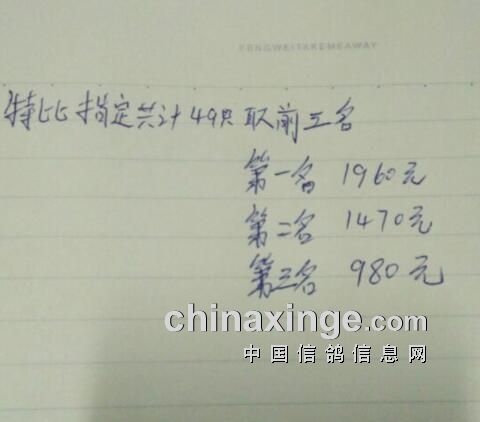 FENGWEITAKEMEAWAY
特比指定共计49只取前三名
第一名 1960元
第二名 1470元
第三名 980元
chinaxinge.com
中国信鸽信息网